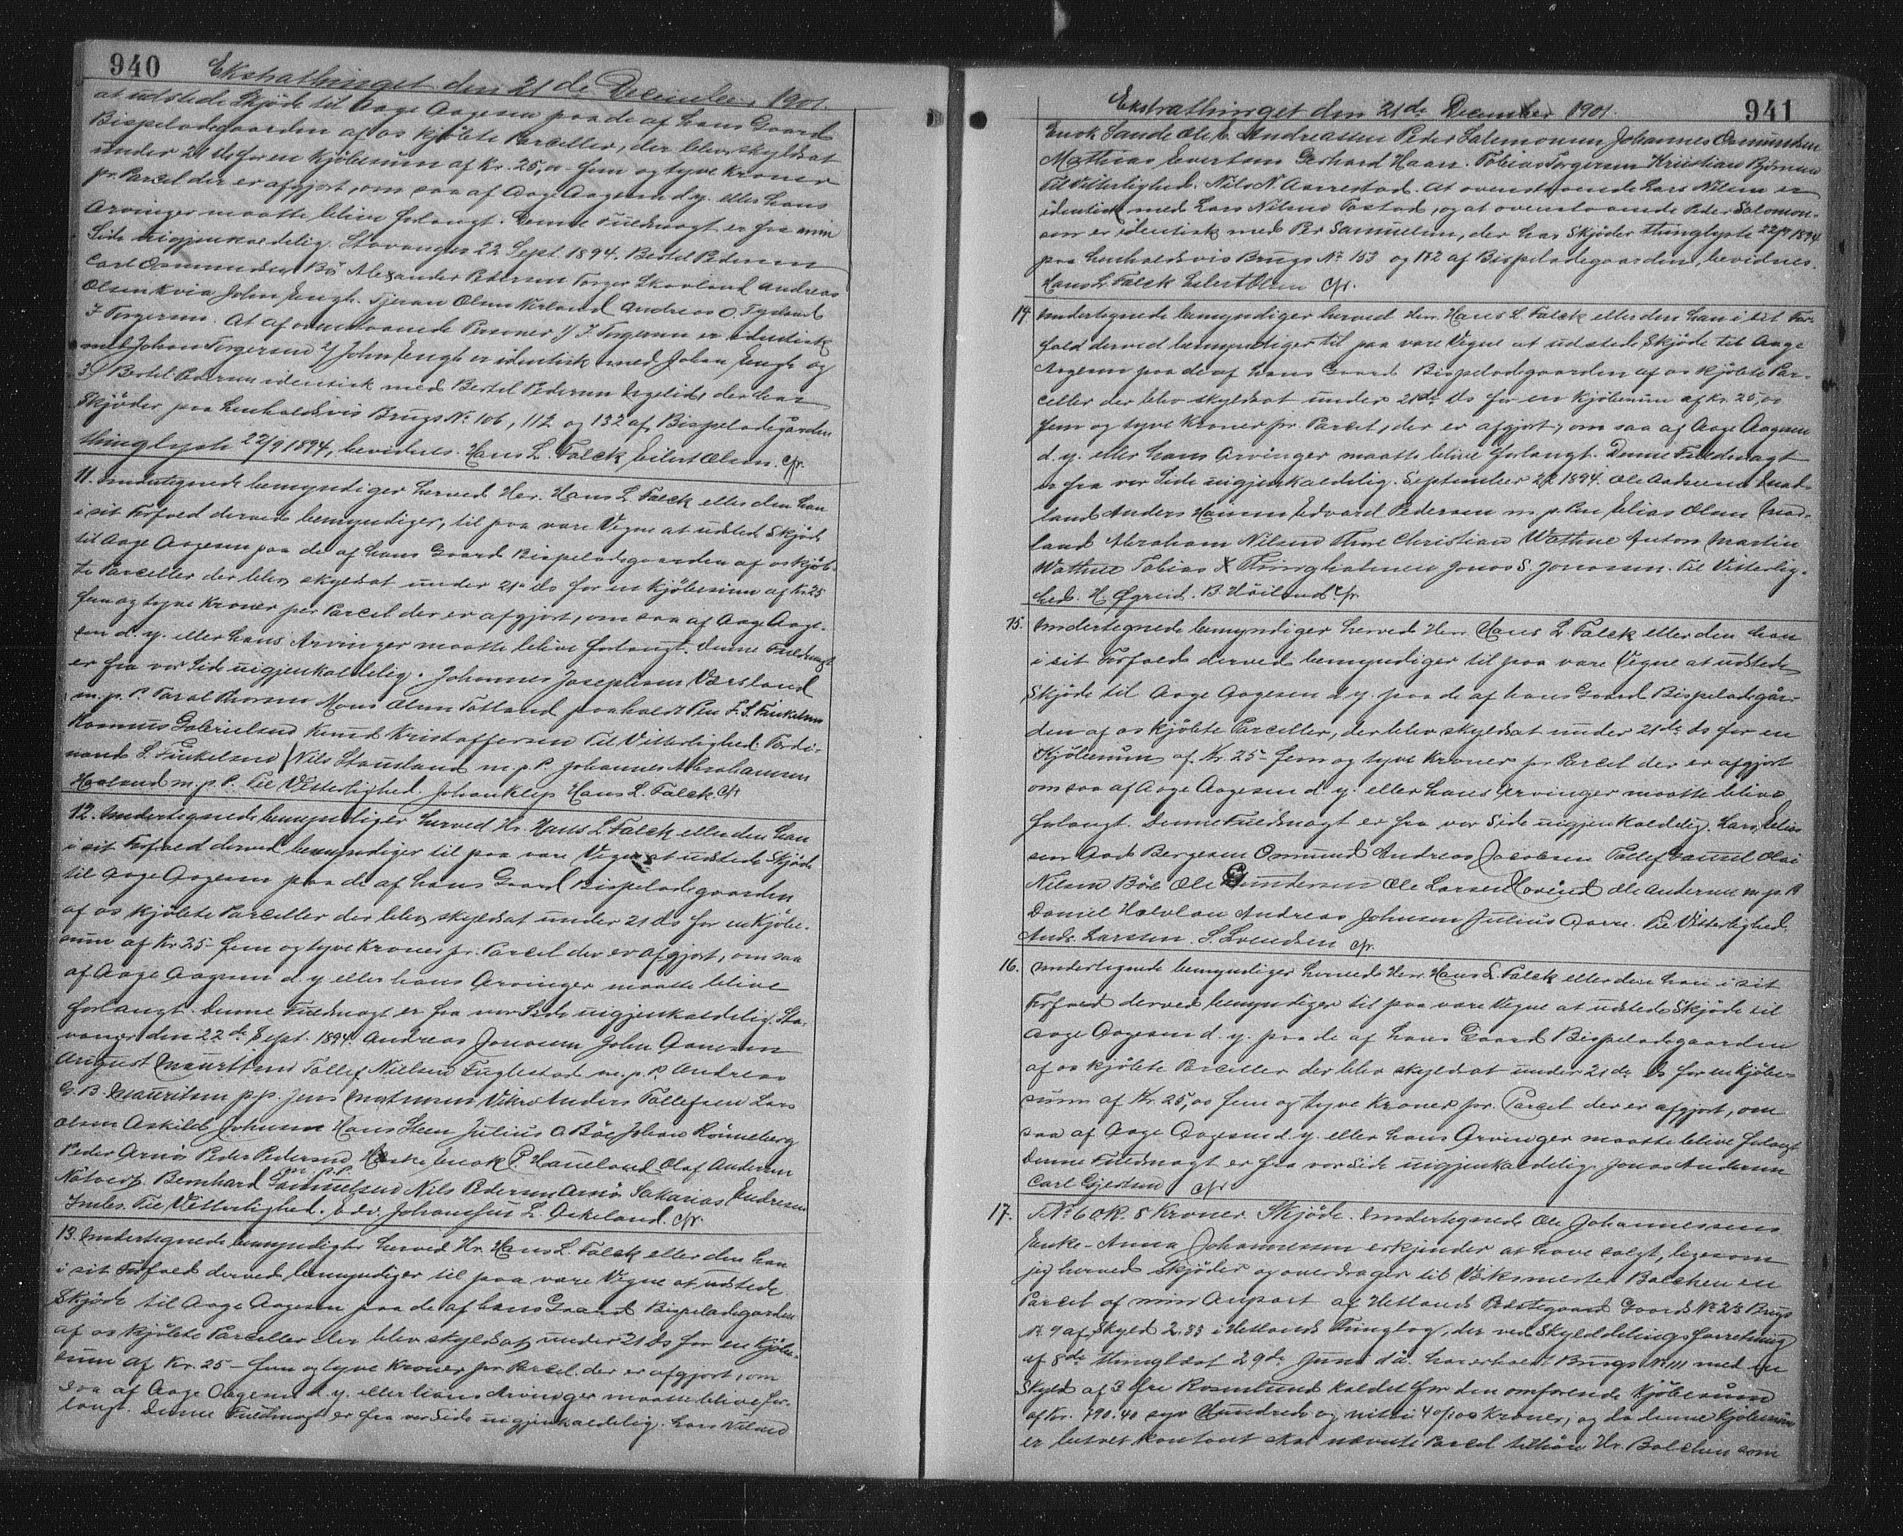 940
Ekstrathinget den 21de December 1901.
at udstede Skjøde til Aage Aagesen paa de af hans Gaard
Bispeladegaarden af os kjøbte Parceller, der blev skyldsat
under 21 ds for en Kjøbesum af Kr. 25,00 fem og tyve Kroner
pr. Parcel der er afgjort, om saa af Aage Aagesen d.y. eller hans
Arvinger maatte blive forlangt. Denne Fuldmagt er fra min
Side uigjenkaldelig. Stavanger 22 Sept. 1894. Bertel Pedersen
Carl Osmundsen Bø Alexander Pedersen Torger Skovland Andreas
Olsen Kvia John Engh. Tjeran Olsen Verland Andreas O. Tydland
T Torgersen. At af ovenstaaende Personer 1) T. Torgersen er identisk
med Johan Torgersen 2) John Engh er identisk med Johan Engh og
3) Bertel Pedersen identisk med Bertel Pedersen Egelid, der har
Skjøder paa henholdsvis Brugs No 106, 112 og 132 af Bispeladegården
thinglyste 22/9 1894, bevidnes. Hans L. Falck Eilert Olsen. cfr.
11. Undertegnede bemyndiger herved Her. Hans L. Falck eller den han
i sit Forfald derved bemyndiger, til paa vore Vegne at udstede Skjøde
til Aage Aagesen paa de af hans Gaard Bispeladegaarden af os kjøb-
te Parceller der blev skyldsat under 21de ds for en Kjøbesum af Kr. 25
fem og tyve Kroner per Parcel der er afgjort, om saa af Aage Aage-
sen d. y. eller hans Arvinger maatte blive forlangt. Denne Fuldmagt
er fra vor Side uigjenkaldelig. Johannes Josephsen Værsland
m. p. P. Taral Thorsen Mons Olsen Totland paaholdt Pen F. S. Finkelsen
Rasmus Gabrielsen Knud Kristoffersen Til Vitterlighed Ferdi-
nand S. Finkelsen / Nils Stousland m. p. P. Johannes Abrahamsen
Haaland m. p. P. Til Vitterlighed. Johan Klep Hans L. Falck. cfr
12. Undertegnede bemyndiger herved Hr. Hans L Falck eller den han
i sit Forfald derved bemyndiger til paa vore Vegne at udstede Skjøde
til Aage Aagesen paa de af hans Gaard Bispeladegaarden
af os kjøbte Parceller der blev skyldsat under 21 ds for en Kjøbe-
sum af Kr. 25 - fem og tyve Kroner pr. Parcel der er afgjort, om saa
af Aage Aagesen d. y eller hans Arvinger maatte blive
forlangt. Denne Fuldmagt er fra vor Side uigjenkaldelig. Sta-
vanger den 22de Sept. 1894. Andreas Jonasen John Aanesen
August Mauritsen Tollef Nielsen Fuglestad m. p. P. Andreas
G. B. Mauritsen p.p. Jens Mathisen Vikre Anders Tollefsen Lars
Olsen Askild Johnsen Hans Steen Julius O Bøe Johan Rönneberg
Peder Arnø Peder Pedersen Høske Enok P. Haueland Olaf Andersen
Nåtvei m. p. P. Bernhard Samuelsen Nils Pedersen Arnø Sakarias Endresen
Imles. Til Vitterlighed. Johannes L. Askeland. cfr.
13. Undertegnede bemyndiger herved Hr. Hans L. Falck eller den han
i sit Forfald derved bemyndiger til paa vore Vegne at udstede
Skjøde til Aage Aagesen paa de af hans Gaard Bispeladegarden
af os kjøbte Parceller der blev skyldsat under 21 ds for en Kjøbe-
sum af Kr. 25 - fem og tyve Kroner pr Parcel der er afgjort, om
saa af Aage Aagesen d. y. eller hans Arvinger maatte blive for-
langt. Denne Fuldmagt er fra vor Side uigjenkaldelig. Lars Nilsen
941
Ekstrathinget den 21de December 1901.
Enok Sande Ole C. Andreassen Peder Salomonsen Johannes Osmundsen
Mathias Evertsen Gerhard Haar. Tobias Torgersen Kristian Bjørnsen
Til Vitterlighed. Nils N. Aarrestad. At ovenstaaende Lars Nilsen er
identisk med Lars Nilsen Tastad, og at ovenstaaende Peder Salomon-
sen er identisk med Per Samuelsen, der har Skjøder thinglyste 22/9 1894
paa henholdsvis Brugs No 153 og 172 af Bispeladegaarden, bevidnes.
Hans L. Falck Eilert Olsen cfr.
14 Undertegnede bemyndiger herved Herr. Hans L Falck eller den han i sit For-
fald derved bemyndiger til paa vore Vegne at udstede Skjøde til Aage
Aagesen paa de af hans Gaard Bispeladegaarden af os kjøbte Par-
celler der blev skyldsat under 21de ds for en Kjøbesum af Kr. 25,00
fem og tyve Kroner pr. Parcel, der er afgjort, om saa af Aage Aagesen
d. y. eller hans Arvinger maatte blive forlangt. Denne Fuldmagt
er fra vor Side uigjenkaldelig. September 22 1894. Ole Aadnesen Mad-
land Anders Hansen Edvard Pedersen m. p. Pen Elias Olsen Mad-
land Abraham Nilsen Thore Christian Wathne Anton Martin
Wathne Tobias X Thinghalmen Jonas S. Jonasen. Til Vitterlig-
hed. H. Øgreid. B. Höiland. cfr.
15. Undertegnede bemyndiger herved Herr Hans L. Falck eller den han
i sit Forfald derved bemyndiger til paa vore Vegne at udstede
Skjøde til Aage Aagesen d. y. paa de af hans Gaard Bispeladegår-
den af os kjøbte Parceller, der blev skyldsat under 21de ds for en
Kjøbesum af Kr. 25 - fem og tyve Kroner pr Parcel der er afgjort
om saa af Aage Aagesen d. y. eller hans Arvinger maatte blive
forlangt. Denne Fuldmagt er fra vor Side uigjenkaldelig. Lars Elias
sen Aad Bergesen Osmund Andreas Jacobsen Tollef Gausel Olai
Nilsen Böe Ole Gundersen Ole Larsen Loviid Ole Andersen m. p. P
Daniel Halvlan Andreas Johnsen Julius Aare. Til Vitterlighed.
Ands. Larsen. S. Svendsen cfr.
16. Undertegnede bemyndiger herved Herr. Hans L. Falck eller den han i sit
Forfald derved bemyndiger til paa vore Vegne at udstede Skjøde til
Aage Aagesen d. y. paa de af hans Gaard Bispeladegaarden
af os kjøbte Parceller der blev skyldsat under 21de ds for en Kjøbe-
sum af Kr. 25,00 fem og tyve Kroner pr. Parcel der er afgjort, om
saa af Aage Aagesen d. y. eller hans Arvinger maatte blive forlangt
Denne Fuldmagt er fra vor Side uigjenkaldelig. Jonas Andersen
Carl Gjertsen cfr
17. No 6 OR. 8 Kroner Skjøde. Undertegnede Ole Johannessens
Enke - Anna Johannesen erkjender at have solgt, ligesom
jeg herved skjøder og overdrager til Værksmester Balchen en
Parcel af min Anpart af Hetlands Prestegaard Gaards No 23 Brugs
No 9 af Skyld 2.33 i Hetlands Thinglag, der ved Skylddelingsforretning
af 8de thinglæst 29de Juni d.å. har erholdt Brugs No 111 med en
Skyld af 3 Øre Rosenlund kaldet for den omforenede Kjøbesum
af Kr. 790.40 syv Hundrede og nitti 40/100 Kroner, og da denne Kjøbesum
er betalt kontant skal nævnte Parcel tilhøre Hr. Balchen som